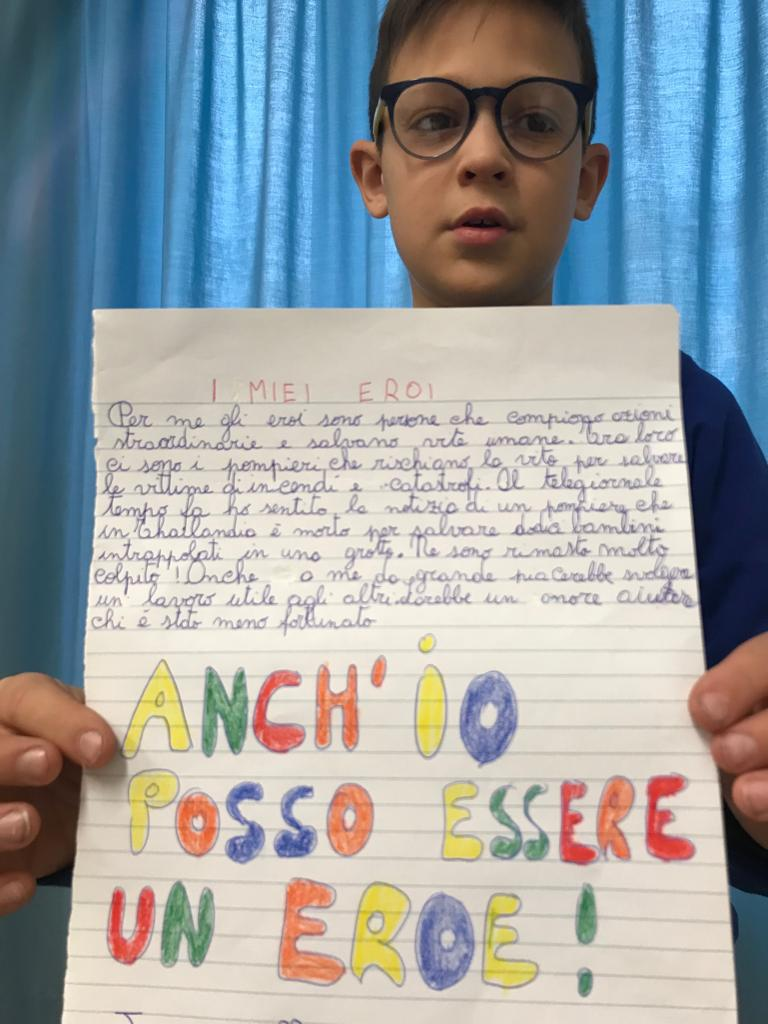 I MIEI EROI
Per me gli eroi sono persone che compiono azioni
straordinarie e salvano vite umane. Tra loro
ci sono i pompieri, che rischiano la vita per salvare
le vittime di incendi e catastrofi. Al telegiornale
tempo fa ho sentito la notizia di un pompiere che
in Thailandia è morto per salvare dodici bambini
intrappolati in una grotta. Ne sono rimasto molto
colpito! Anche a me da grande piacerebbe svolgere
un lavoro utile agli altri: sarebbe un onore aiutare
chi è stato meno fortunato
ANCH'IO
POSSO ESSERE
UN EROE!